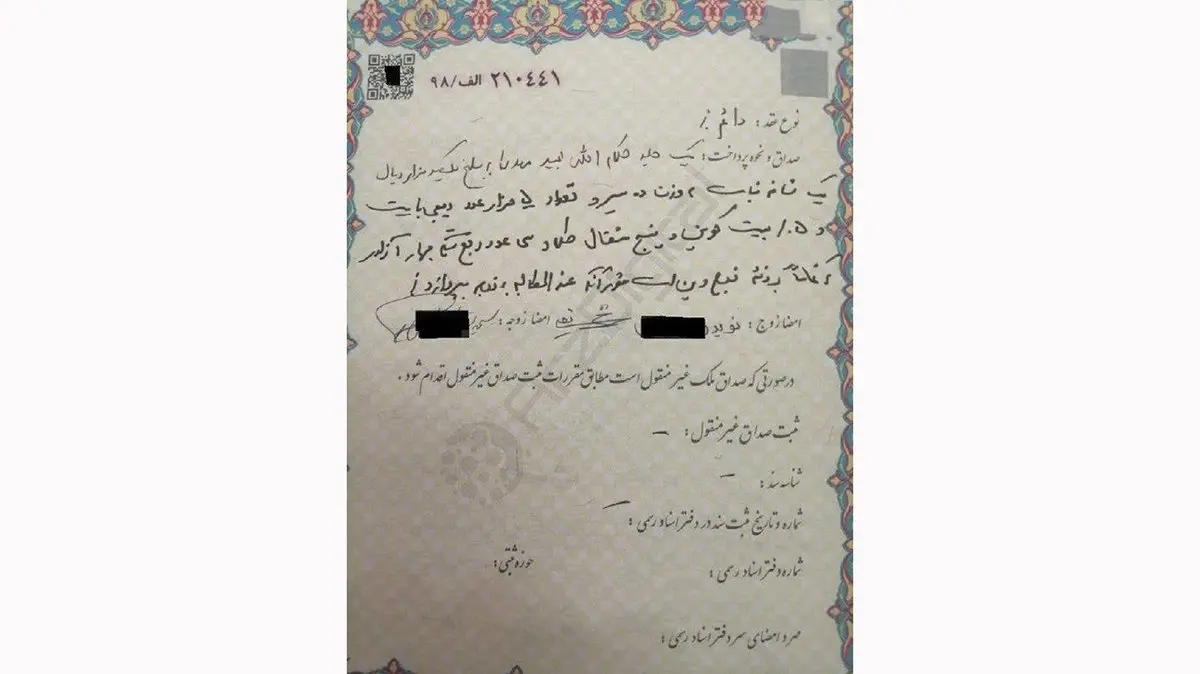 ۲۱۰۴۴۱ الف/۹۸
نوع عقد: دائم
صداق و نحوه پرداخت: یک جلد کلام الله مجید مهدیا به مبلغ یکصد هزار ریال
یک شاخه نبات به وزن ده سیر و تعداد هزار عدد دیجی بایت
و ۰.۵ بیت کوین و پنج مثقال طلا و سی عدد ربع سکه بهار آزادی
که تماماً بر ذمه زوج دین است عندالمطالبه به زوجه بپردازد
امضا زوج: نوید امضا زوجه:
درصورتی که صداق ملک غیرمنقول است مطابق مقررات ثبت صداق غیرمنقول اقدام شود.
ثبت صداق غیرمنقول: –
شناسه سند: –
شماره و تاریخ ثبت سند در دفتر اسناد رسمی: –
شماره دفتر اسناد رسمی: حوزه ثبتی:
مهر و امضای سردفتر اسناد رسمی:
ArzDigital